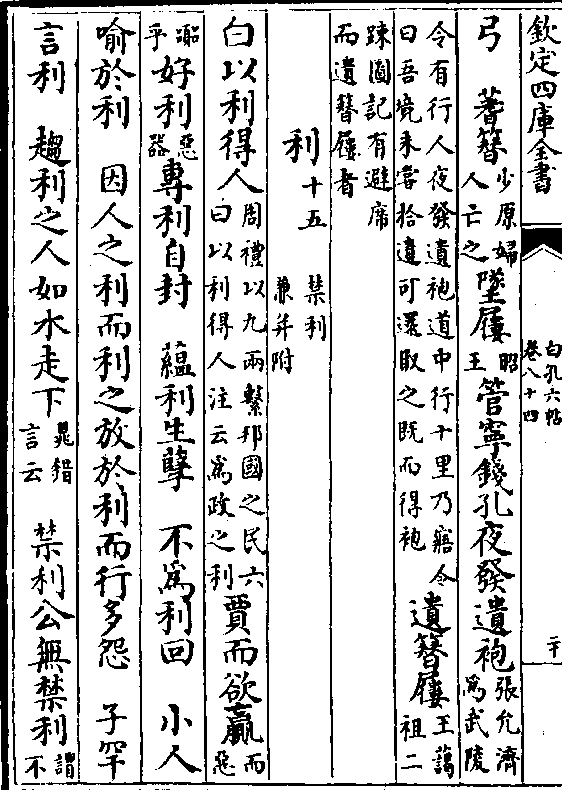 欽定四庫全書
白孔六帖
卷八十四
二十
弓　蓍簪少原婦人亡之墜屨昭王管寧錢孔夜發遺袍張允濟為武陵
令有行人夜發遺袍道中行十里乃寤令曰吾境未嘗拾遺可還取之既而得袍遺簪屨王藹祖二
踈圖記有避席而遺簪屨者
利十五　禁利兼并附
曰以利得人周禮以九兩繫邦國之民六曰以利得人注云為政之利賈而欲贏而惡
嚻乎好利惡器專利自封　蘊利生孽　不為利回　小人
喻於利　因人之利而利之放於利而行多怨　子罕
言利　趨利之人如水走下鼂錯言云　禁利公無禁利謂不